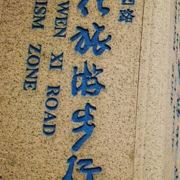 路
旅游步行
WEN XI ROAD
ISM ZONE